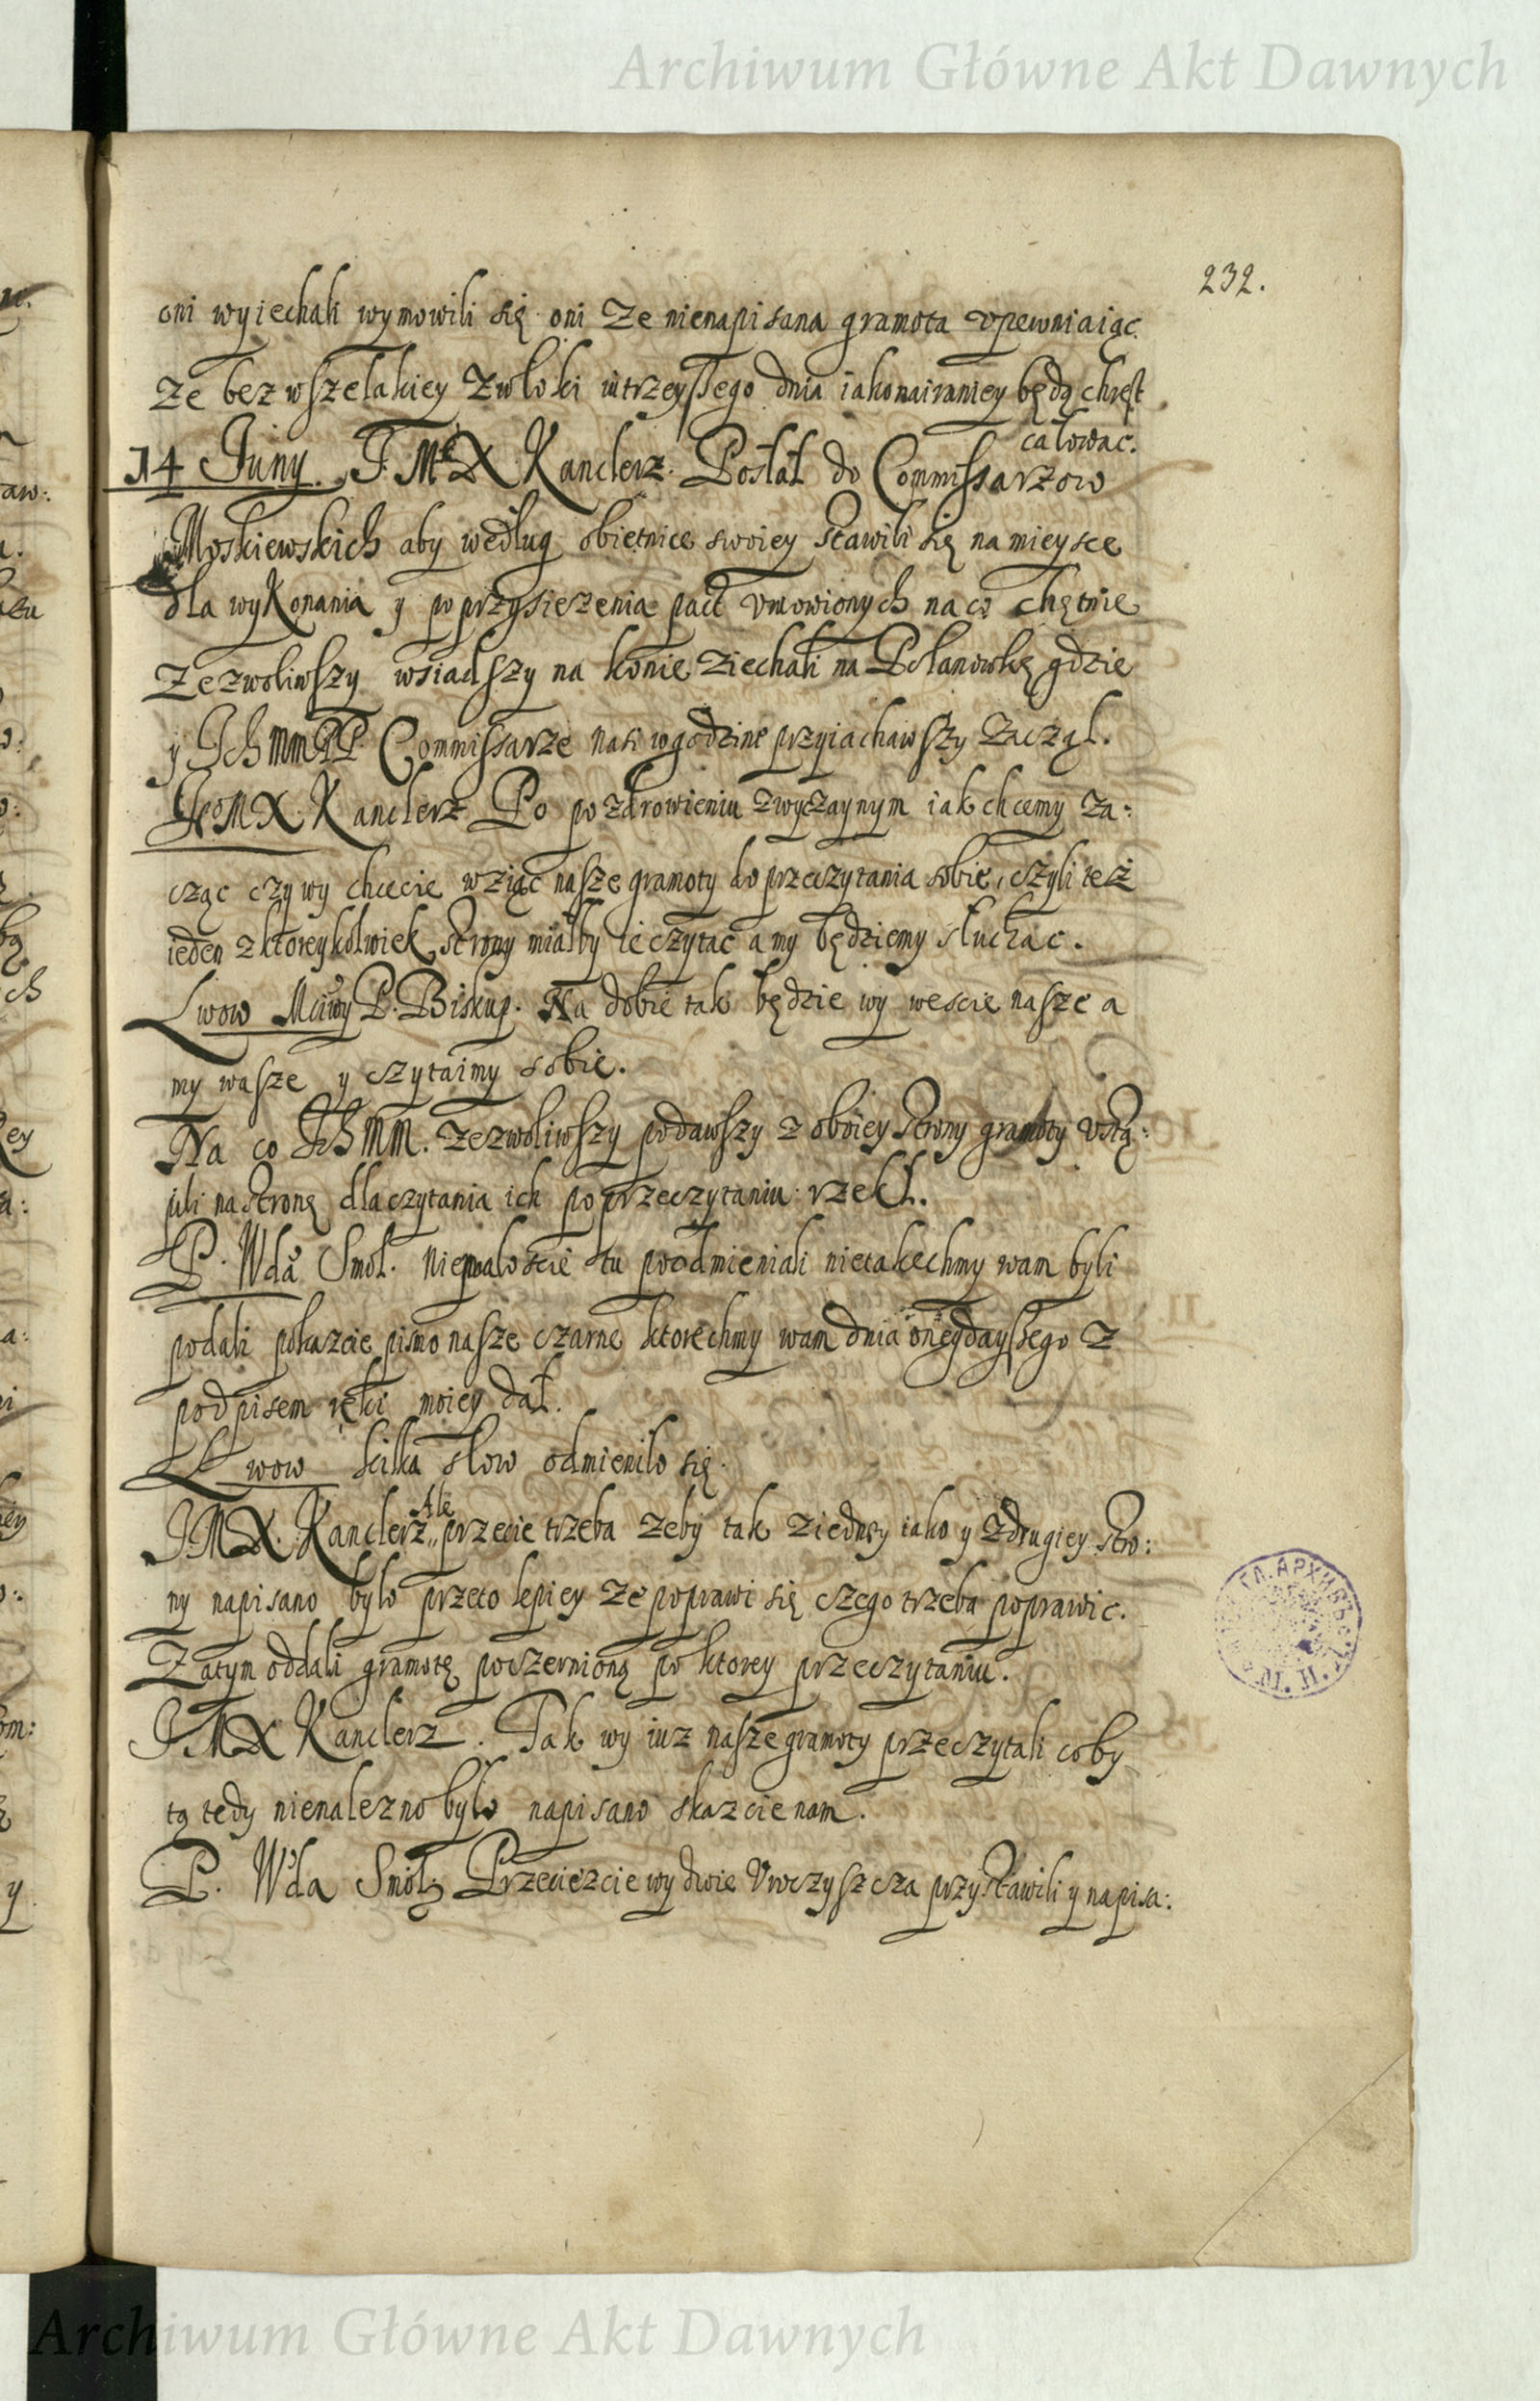 Archiwum Główne Akt Dawnych
232.
oni wyiechali wymowili się oni Ze nienapisana gramota vpewniaiąc
Ze bez wszelakiey Zwłoki iutrzeyszego dnia iakonairaniey będą chrest
całowac.
14 Juny. J. Mć X Kanclerz. Posłał do Commissarzow
Moskiewskich aby według obietnice swoiey stawili się na mieysce
dla wyKonania y poprzysiezenia pact vmowionych na co chętnie
Zezwoliwszy wsiadszy na konie Ziechali na Polanowkę gdzie
y Ich mm PP. Commissarze nasi w godzine przyiachawszy Zaczął.
Je° M X. Kanclerz Po pozdrowieniu Zwyczaynym iak chcemy Za:
cząc czy wy chcecie wziąc nasze gramoty do przeczytania sobie, czyli też
ieden z ktoreykolwiek strony miałby ie czytac a my będziemy słuchac.
Lwow P. Biskup. Na dobie tak będzie wy wescie nasze a
my wasze y czytaimy sobie.
Na co Ich mm. Zezwoliwszy podawszy z oboiey strony gramoty vstą:
pili na stronę dla czytania ich po przeczytaniu rzekł.
P. Wda Smol. Niemaloscie tu poodmieniali nietakechmy wam byli
podali pokazcie pismo nasze czarne ktorechmy wam dnia onegdayszego z
podpisem ręki moiey dał.
Lwow kilka słow odmienilo się.
J M X. Kanclerz Ale przecie trzeba Zeby tak Ziedney iako y Zdrugiey stro:
ny napisano bylo przeto lepiey Ze poprawi się czego trzeba poprawic.
Zatym oddali gramotę poczernioną po ktorey przeczytaniu.
J M X Kanclerz. Tak wy iuz nasze gramoty przeczytali coby
tą tedy nienalezno bylo napisano skazcie nam.
P. Wda Smol. Przeciezcie wy dwie Vroczyszcza przystawili y napisa:
Archiwum Główne Akt Dawnych